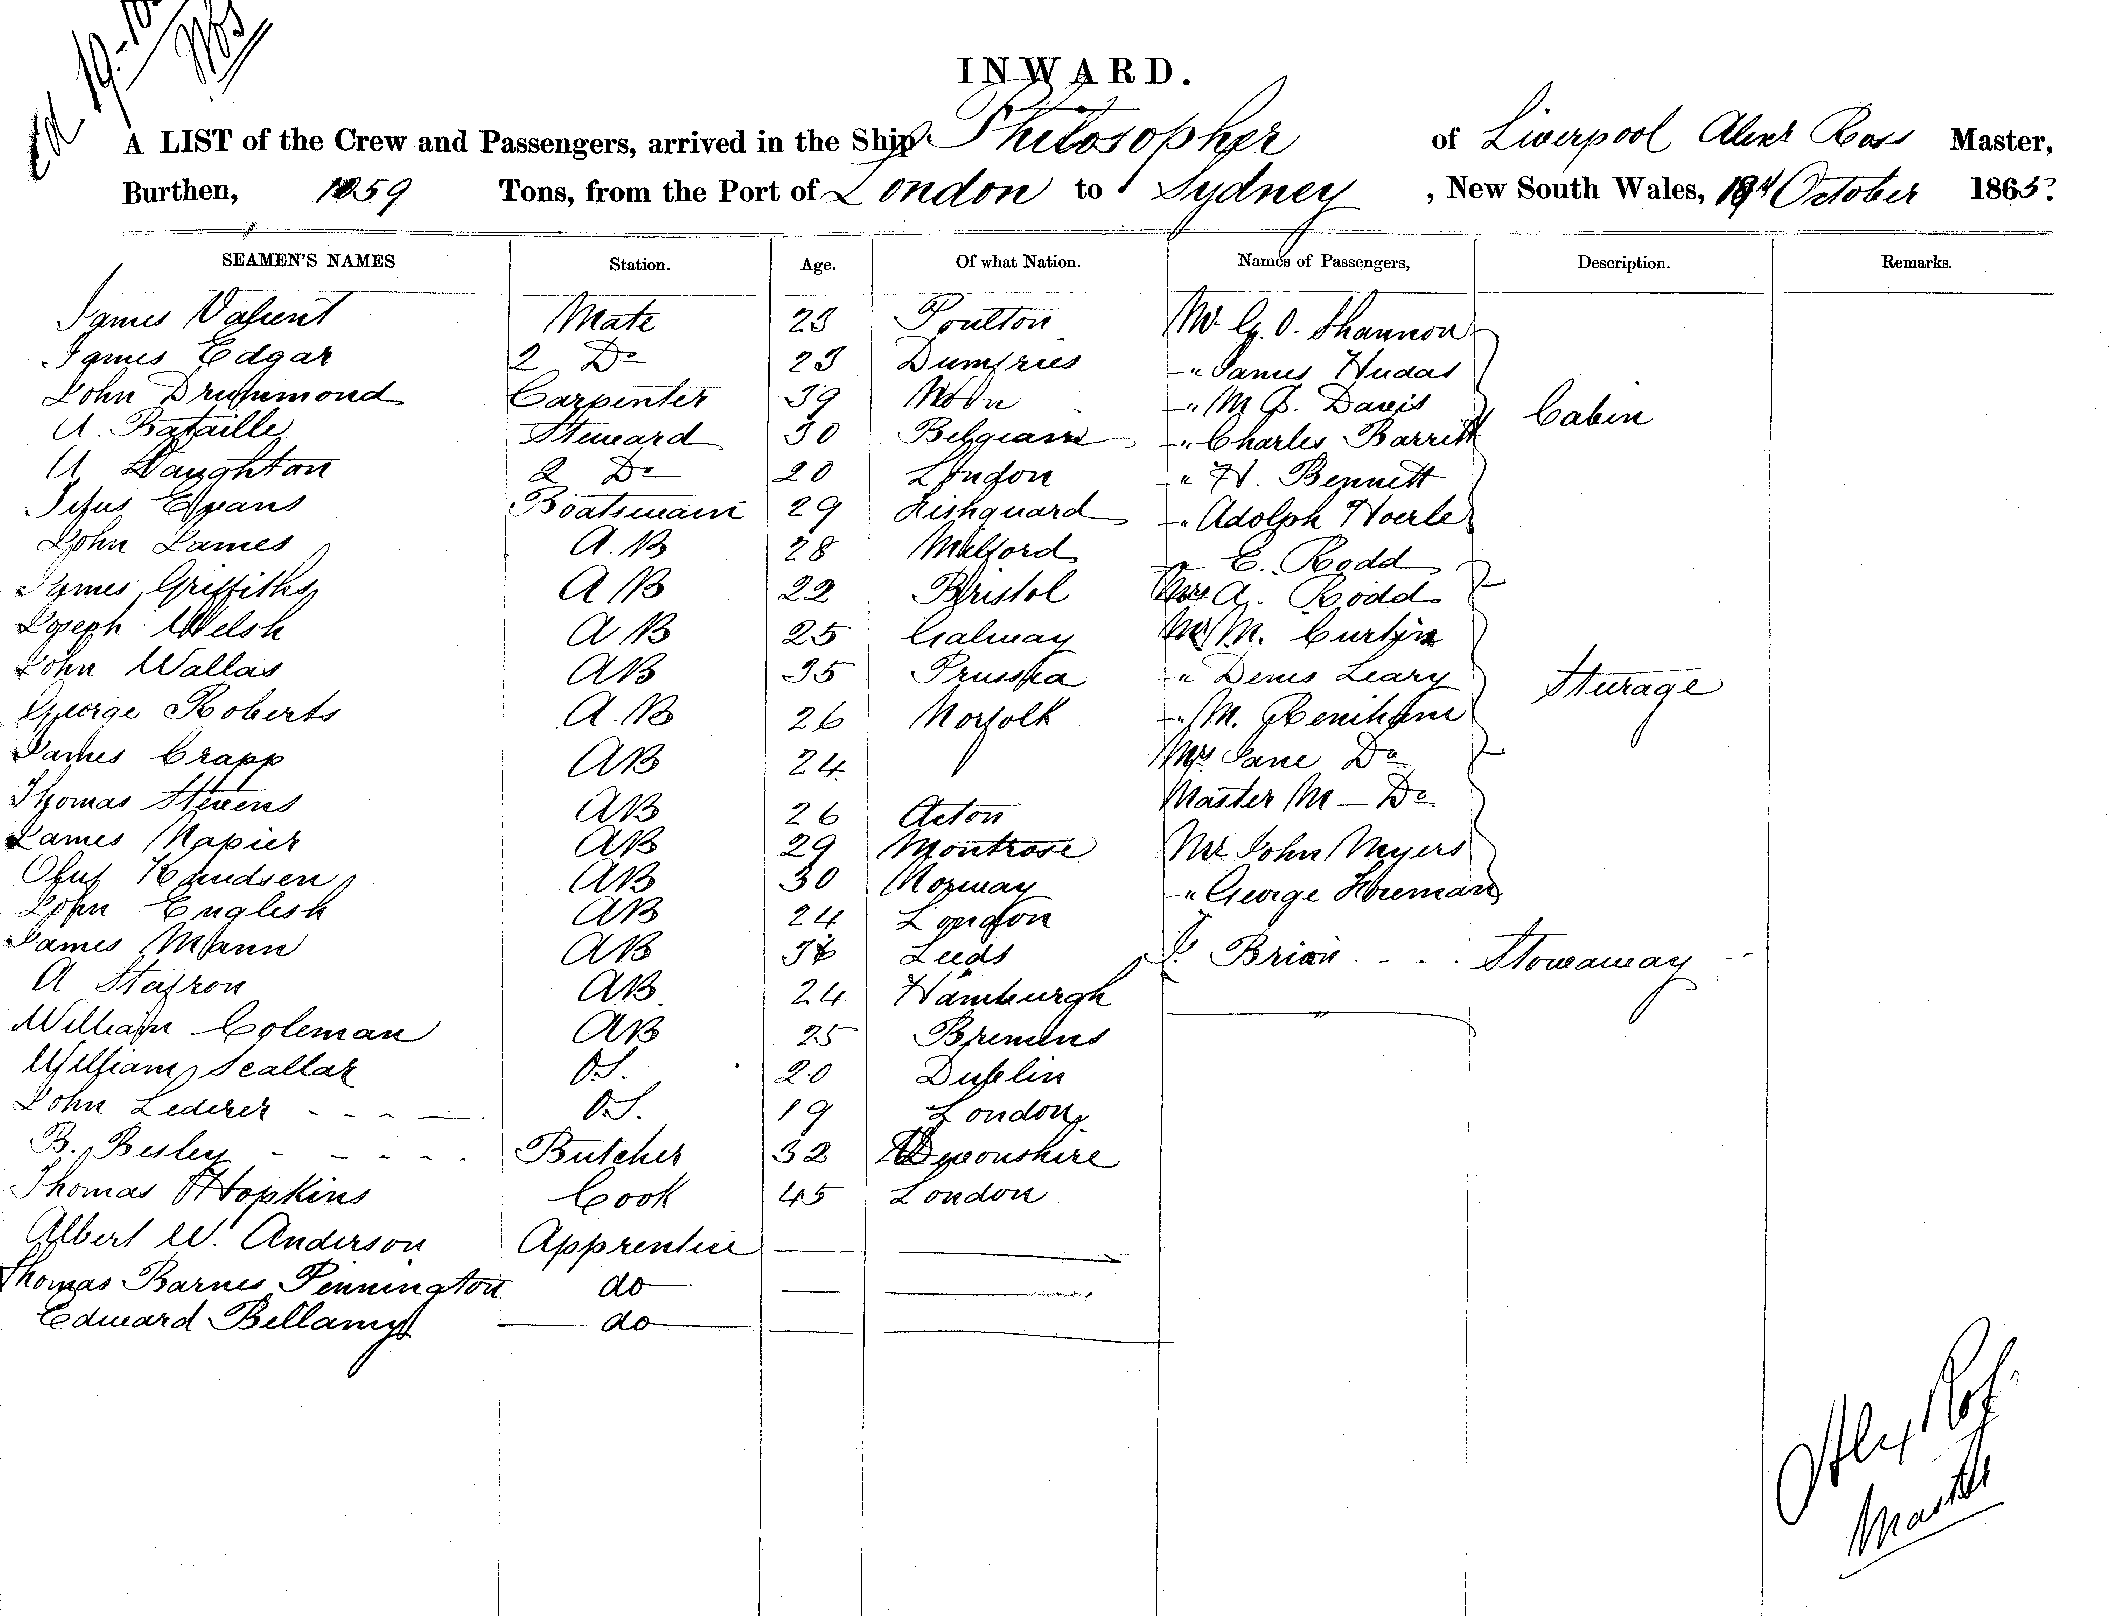 Ed 19-10
INWARD.
A LIST of the Crew and Passengers, arrived in the Ship Philosopher of Liverpool Alexr Ross Master,
Burthen, 1059 Tons, from the Port of London to Sydney, New South Wales, 19th October 1865.
SEAMEN'S NAMES Station. Age. Of what Nation. Names of Passengers, Description. Remarks.
James Valient Mate 23 Poulton Mr G. O. Shannon
James Edgar 2 Do 23 Dumfries " James Hudas
John Drummond Carpenter 39 " M D. Davis Cabin
A. Bataille Steward 30 Belgeam " Charles Barritt
A Haughton 2 Do 20 London " H. Bennett
Titus Evans Boatsmain 29 Fishguard " Adolph Hoerle
John James A.B 28 Milford " E. Rodd
James Griffiths AB 22 Bristol Mrs A. Rodd
Joseph Welsh AB 25 Galway Mr M. Curtin
John Wallas AB 35 Prussia " Denis Leary Sturage
George Roberts A.B 26 Norfolk " M. Renihan
James Crapp AB 24 Mrs Jane Do
Thomas Stevens AB 26 Acton Master M - Do
James Napier AB 29 Montrose Mr John Myers
Oluf Knudsen AB 30 Norway " George
John English AB 24 London
James Mann AB Leeds J. Brian . . . . Stowaway
A AB 24 Hamburgh
William Coleman AB 25 Bremens
William Scallar O.S. 20 Dublin
John Lederer O.S. 19 London
B. Besley Butcher 32 Devonshire
Thomas Hopkins Cook 45 London
Albert W. Anderson Apprentice
Thomas Barnes Pennington do
Edward Bellamy do
Alex Ross
Master